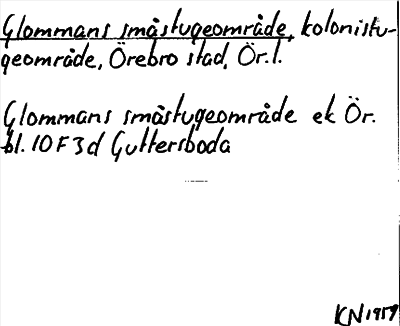 Glommans småstugeområde, kolonistu-
geområde, Örebro stad, Ör.l.
Glommans småstugeområde ek Ör.
bl. 10F3d Guttersboda
KN 1959